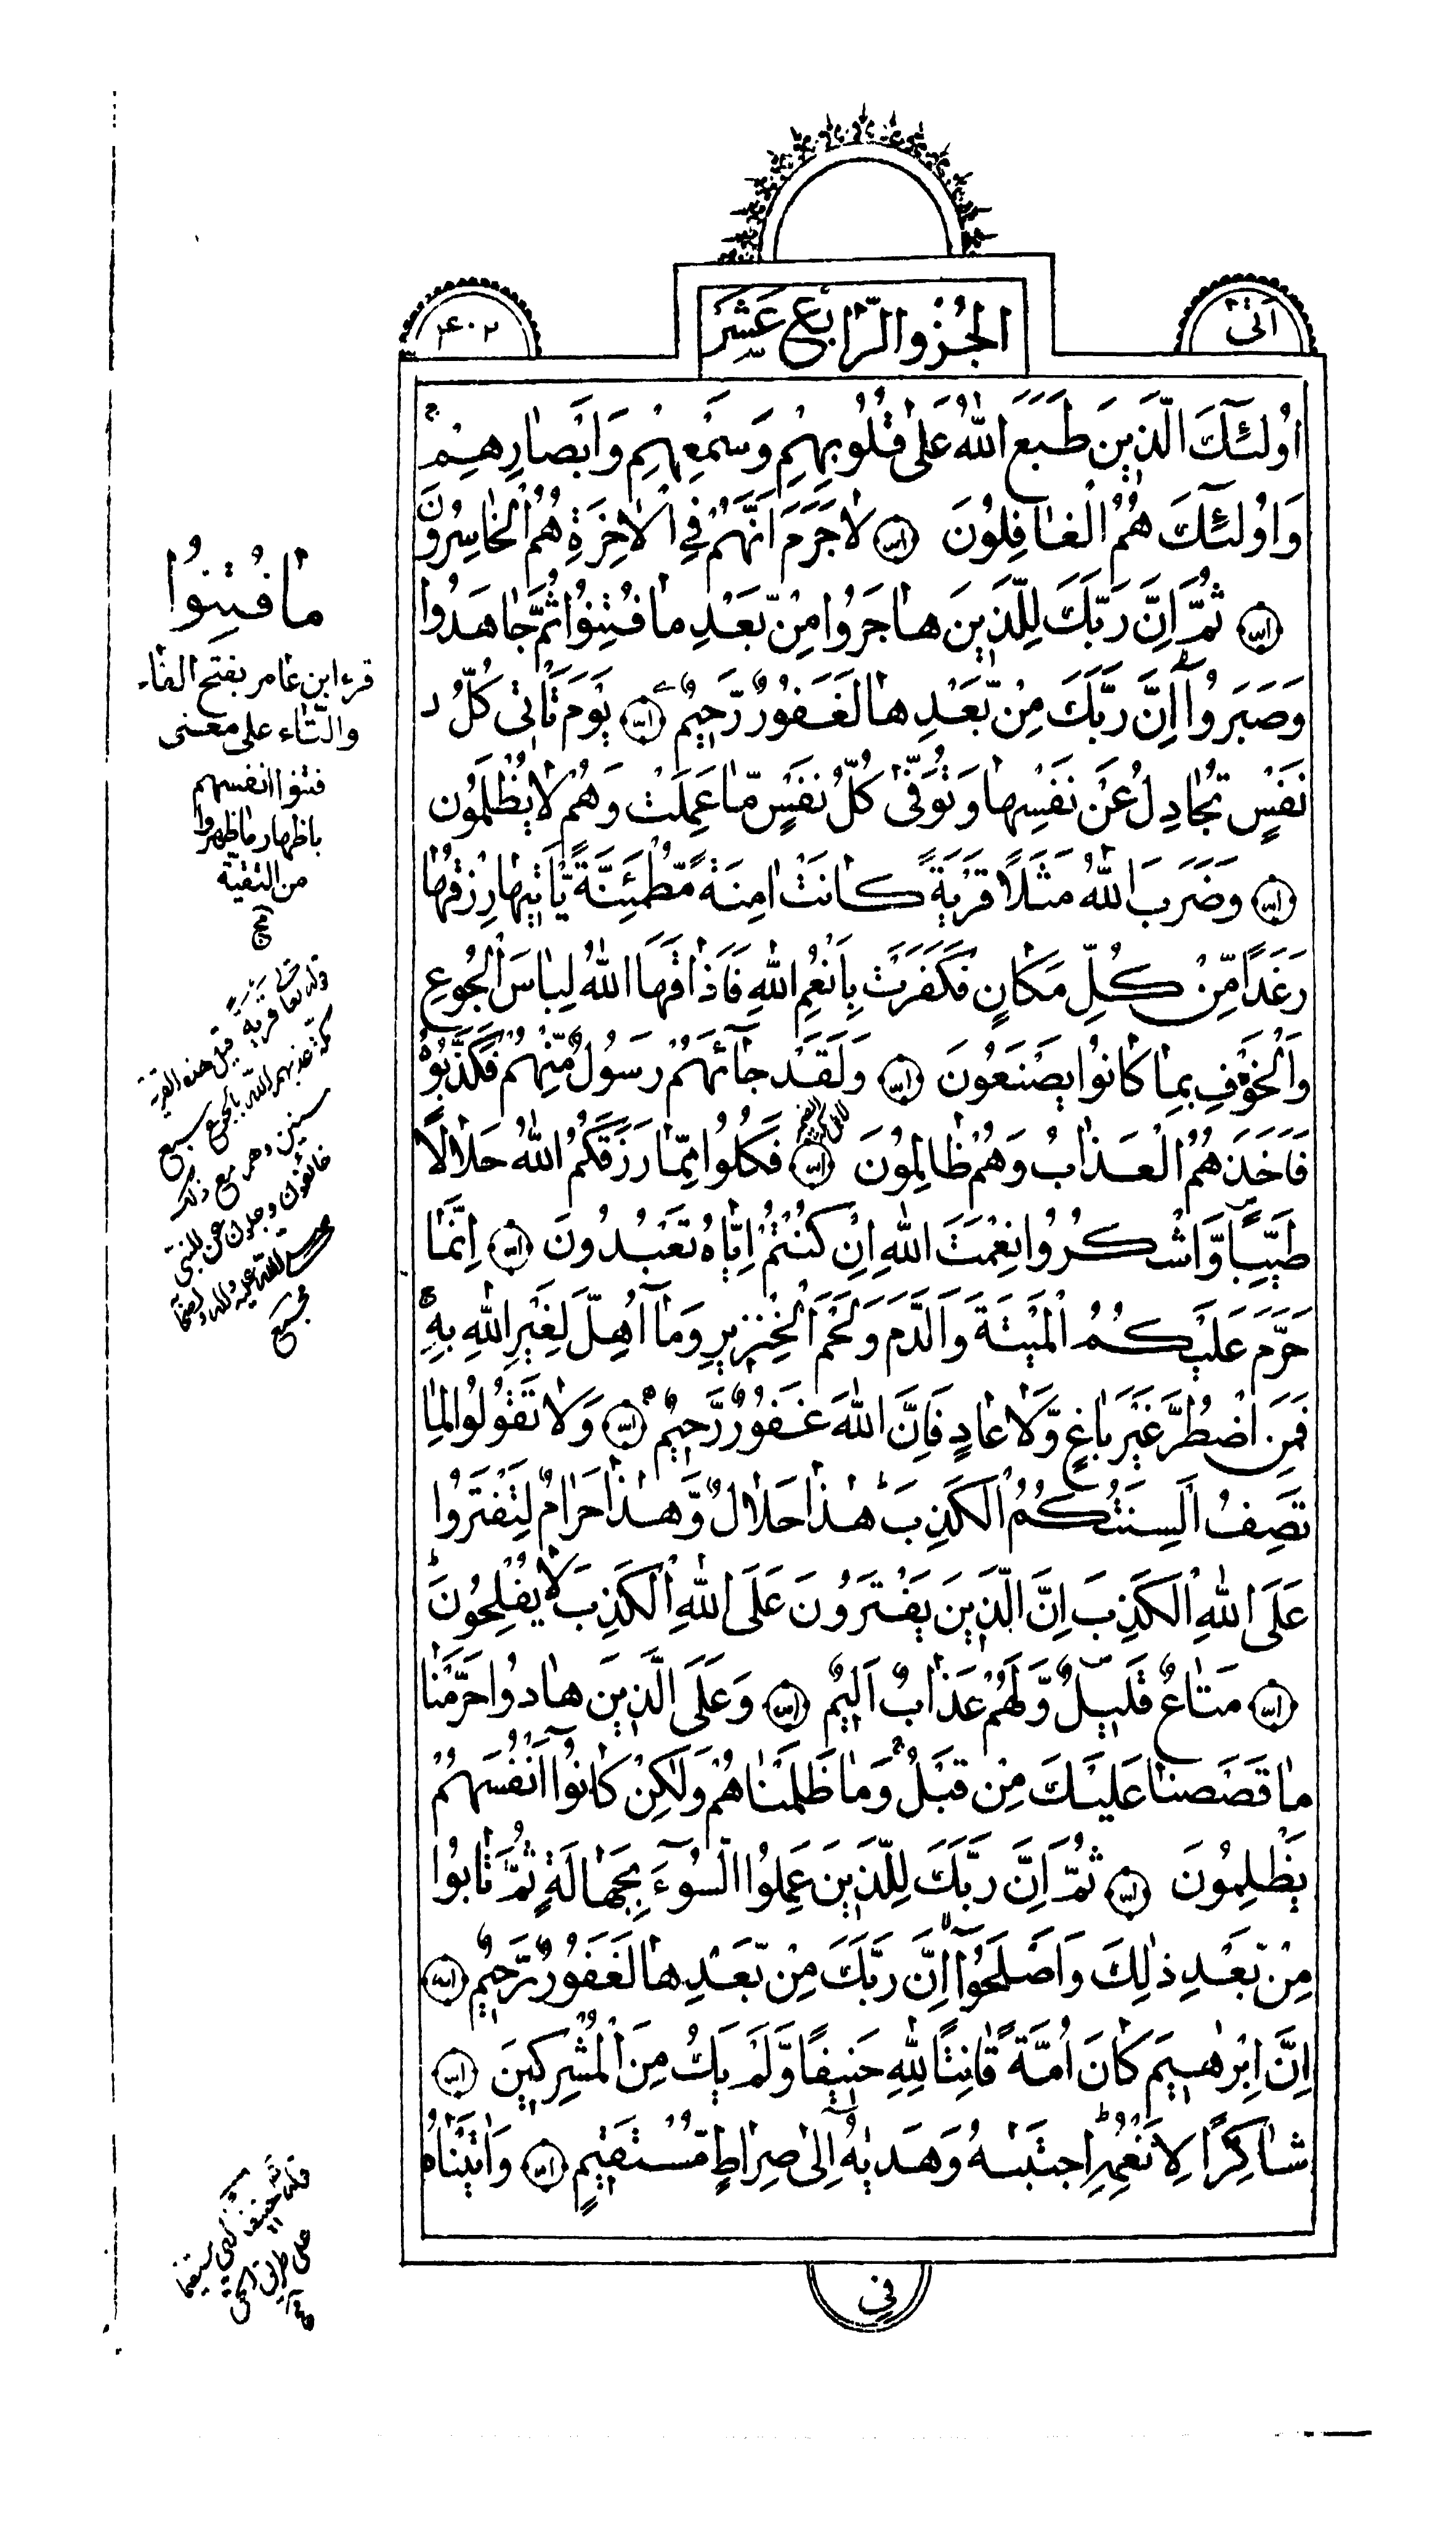 اَتىٰ
الجُزْوالرّابِع عَشَرَ
۴۰۲
اُولٰٓئِكَ الَّذينَ طَبَعَ اللّٰهُ عَلىٰ قُلُوبِهِمْ وَسَمْعِهِمْ وَاَبْصارِهِمْ ج
وَاُولٰٓئِكَ هُمُ الْغافِلُونَ لاجَرَمَ اَنَّهُمْ فِي الْاٰخِرَةِ هُمُ الْخاسِرُونَ
ثُمَّ اِنَّ رَبَّكَ لِلَّذينَ هاجَرُوا مِنْ بَعْدِ ما فُتِنُوا ثُمَّ جاهَدُوا
وَصَبَرُوٓا اِنَّ رَبَّكَ مِنْ بَعْدِها لَغَفُورٌ رَّحيمٌ يَوْمَ تَاْتى كُلُّ
نَفْسٍ تُجادِلُ عَنْ نَفْسِها وَتُوَفّىٰ كُلُّ نَفْسٍ مّا عَمِلَتْ وَهُمْ لايُظْلَمُون
وَضَرَبَ اللّٰهُ مَثَلًا قَرْيَةً كانَتْ اٰمِنَةً مُّطْمَئِنَّةً يَّاْتيها رِزْقُها
رَغَدًا مِّنْ كُلِّ مَكانٍ فَكَفَرَتْ بِاَنْعُمِ اللّٰهِ فَاَذاقَهَا اللّٰهُ لِباسَ الْجُوعِ
وَالْخَوْفِ بِما كانُوا يَصْنَعُونَ وَلَقَدْ جآئَهُمْ رَسُولٌ مِّنْهُمْ فَكَذَّبُوهُ
فَاَخَذَهُمُ الْعَذابُ وَهُمْ ظالِمُونَ فَكُلُوا مِمّا رَزَقَكُمُ اللّٰهُ حَلالًا
طَيِّبًا وَّاشْكُرُوا نِعْمَتَ اللّٰهِ اِنْ كُنْتُمْ اِيّاهُ تَعْبُدُونَ اِنَّما
حَرَّمَ عَلَيْكُمُ الْمَيْتَةَ وَالدَّمَ وَلَحْمَ الْخِنْزيرِ وَمآ اُهِلَّ لِغَيْرِ اللّٰهِ بِهِ ج
فَمَنِ اضْطُرَّ غَيْرَ باغٍ وَّلا عادٍ فَاِنَّ اللّٰهَ غَفُورٌ رَّحيمٌ وَلا تَقُولُوا لِما
تَصِفُ اَلْسِنَتُكُمُ الْكَذِبَ هٰذا حَلالٌ وَّهٰذا حَرامٌ لِتَفْتَرُوا
عَلَى اللّٰهِ الْكَذِبَ اِنَّ الَّذينَ يَفْتَرُونَ عَلَى اللّٰهِ الْكَذِبَ لايُفْلِحُونَ
مَتاعٌ قَليلٌ وَّلَهُمْ عَذابٌ اَليمٌ وَعَلَى الَّذينَ هادُوا حَرَّمْنا
ما قَصَصْنا عَلَيْكَ مِنْ قَبْلُ وَما ظَلَمْناهُمْ وَلٰكِنْ كانُوٓا اَنْفُسَهُمْ
يَظْلِمُونَ ثُمَّ اِنَّ رَبَّكَ لِلَّذينَ عَمِلُوا السُّوٓءَ بِجَهالَةٍ ثُمَّ تابُوا
مِنْ بَعْدِ ذٰلِكَ وَاَصْلَحُوٓا اِنَّ رَبَّكَ مِنْ بَعْدِها لَغَفُورٌ رَّحيمٌ
اِنَّ اِبْرٰهيمَ كانَ اُمَّةً قانِتًا لِلّٰهِ حَنيفًا وَّلَمْ يَكُ مِنَ الْمُشْرِكينَ
شاكِرًا لِاَنْعُمِهِ اِجْتَبٰيهُ وَهَدٰيهُ اِلىٰ صِراطٍ مُّسْتَقيمٍ وَاٰتَيْناهُ
فى
ما فُتِنُوا
قرء ابن عامر بفتح الفاء
والتاء على معنى
فتنوا انفسهم
باظهار ما ظهروا
من التقيّة
مج
قوله تعا قرية قيل هذه القرية
مكّة عذبهم اللّه بالجوع سبع
سنين وهم مع ذلك
خائفون وجلون عن النبى
صلى الله عليه وآله واصحابه
مجمع
قوله حنيفا اى مستقيما
على طريق الحق